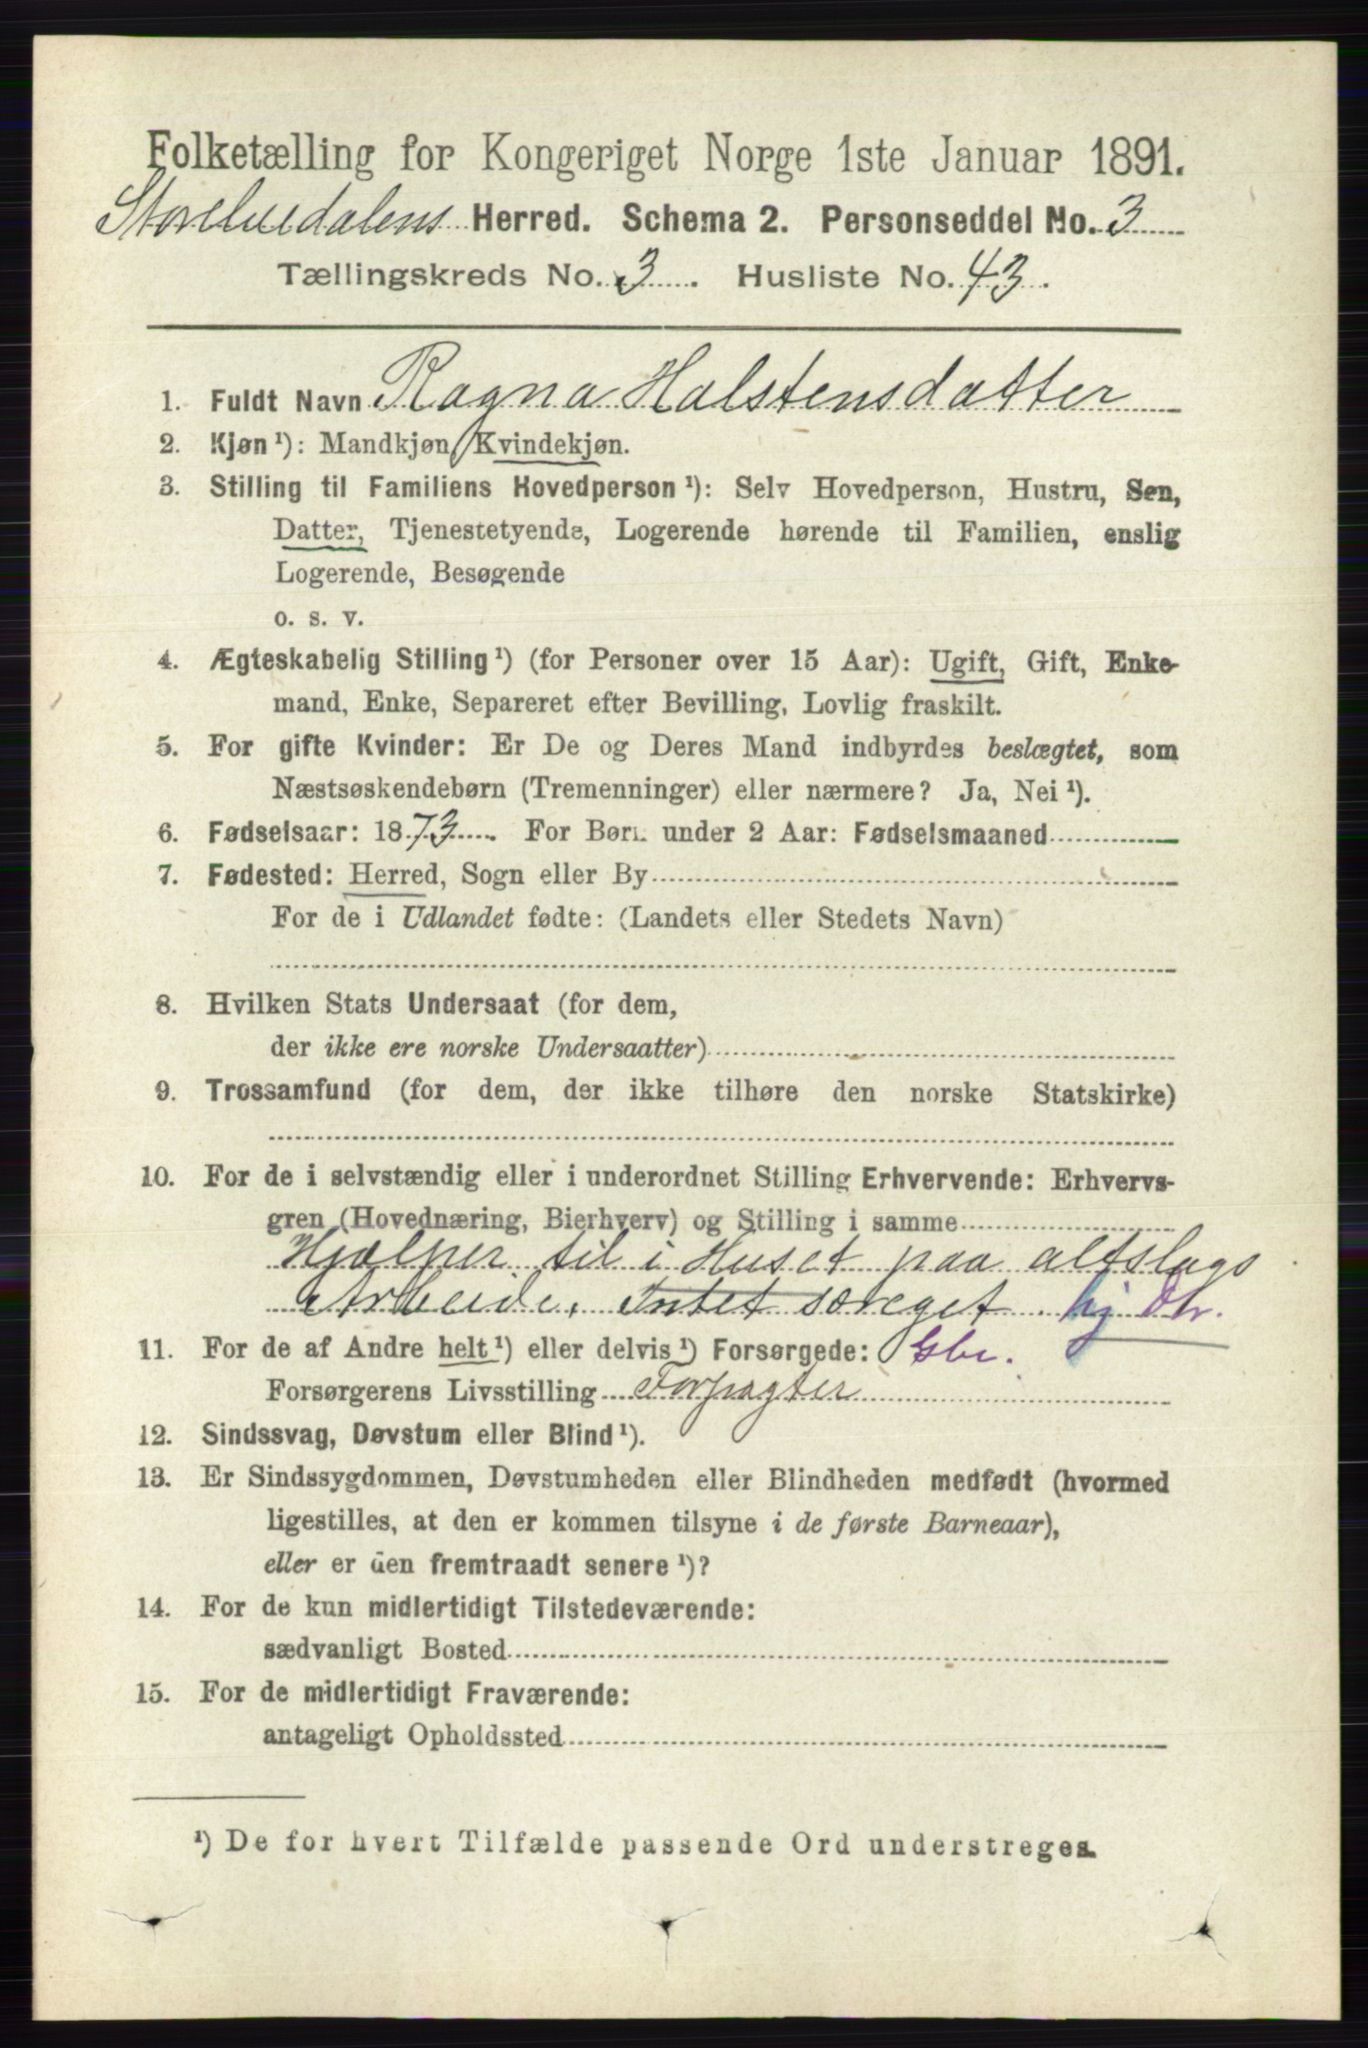 Folketælling for Kongeriget Norge 1ste Januar 1891.
Storelvedalens Herred. Schema 2. Personseddel No. 3
Tællingskreds No. 3. Husliste No. 43.
1. Fuldt Navn Ragna Halstensdatter
2. Kjøn¹): Mandkjøn, Kvindekjøn.
3. Stilling til Familiens Hovedperson¹): Selv Hovedperson, Hustru, Søn,
Datter, Tjenestetyende, Logerende hørende til Familien, enslig
Logerende, Besøgende
o. s. v.
4. Ægteskabelig Stilling¹) (for Personer over 15 Aar): Ugift, Gift, Enke-
mand, Enke, Separeret efter Bevilling, Lovlig fraskilt.
5. For gifte Kvinder: Er De og Deres Mand indbyrdes beslægtet, som
Næstsøskendebørn (Tremenninger) eller nærmere? Ja, Nei¹).
6. Fødselsaar: 1873. For Børn under 2 Aar: Fødselsmaaned
7. Fødested: Herred, Sogn eller By
For de i Udlandet fødte: (Landets eller Stedets Navn)
8. Hvilken Stats Undersaat (for dem,
der ikke ere norske Undersaatter)
9. Trossamfund (for dem, der ikke tilhøre den norske Statskirke)
10. For de i selvstændig eller i underordnet Stilling Erhvervende: Erhvervs-
gren (Hovednæring, Bierhverv) og Stilling i samme
Hjælper til i Huset paa altslags
Arbeide. Intet særeget. hj
11. For de af Andre helt¹) eller delvis¹) Forsørgede: Gbr.
Forsørgerens Livsstilling Forpagter
12. Sindssvag, Døvstum eller Blind¹).
13. Er Sindssygdommen, Døvstumheden eller Blindheden medfødt (hvormed
ligestilles, at den er kommen tilsyne i de første Barneaar),
eller er den fremtraadt senere¹)?
14. For de kun midlertidigt Tilstedeværende:
sædvanligt Bosted
15. For de midlertidigt Fraværende:
antageligt Opholdssted
¹) De for hvert Tilfælde passende Ord understreges.